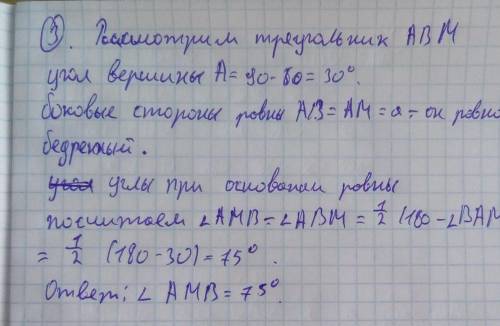 ③. Рассмотрим треугольник ABM
угол вершины A = 90-60 = 30°.
боковые стороны ровны AB = AM = a - он ровно
бедренный.
углы при основании ровны
посчитаем ∠AMB = ∠ABM = 1/2 (180 - ∠BAM
= 1/2 (180 - 30) = 75°.
Ответ: ∠ AMB = 75°.